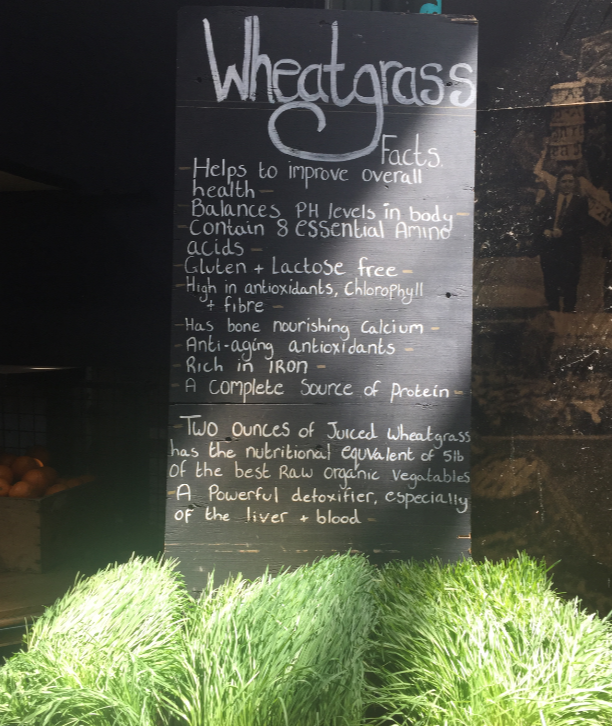 Wheatgrass
Facts.
- Helps to improve overall
health -
- Balances PH levels in body -
- Contain 8 essential Amino
acids -
- Gluten + Lactose free -
- High in antioxidants, Chlorophyll
+ fibre -
- Has bone nourishing Calcium -
- Anti-aging antioxidants -
- Rich in IRON -
- A complete Source of Protein -
- Two ounces of Juiced wheatgrass
has the nutritional equvalent of 5lb
of the best Raw organic vegatables
- A Powerful detoxifier, especially
of the liver + blood -